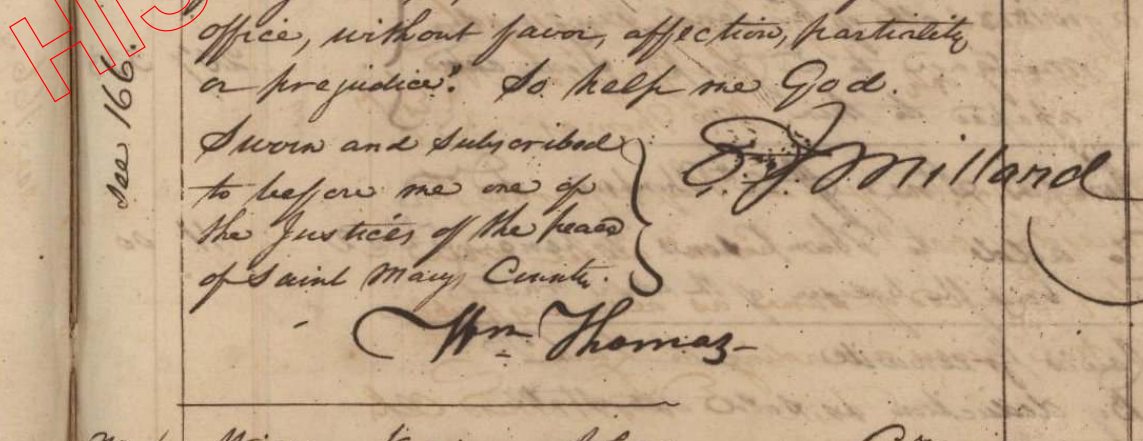 HIS
office, without favor, affection, partiality
or prejudice". So help me God.
see 166.
Sworn and Subscribed
to before me one of
the Justices of the peace
of Saint Marys County.
Millard
Wm Thomas